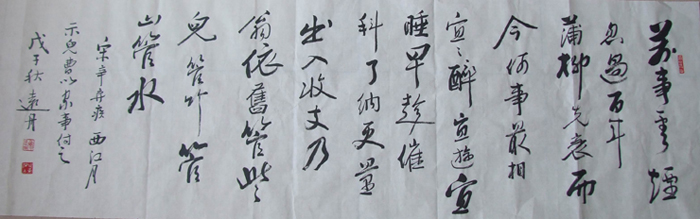 萬事雲煙
忽過百年
蒲柳先衰而
今何事最相
宜〻醉宜遊宜
睡早趁催
科了納更量
出入收支乃
翁依舊管些
兒管竹管
山管水
宋辛弃疾西江月
示兒曹以家事付之
戊子秋